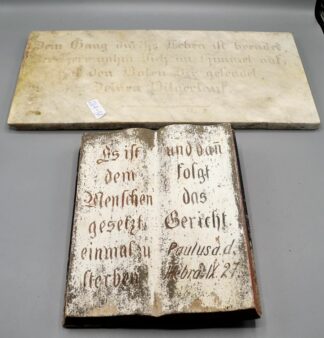 Dein Gang durchs Leben ist beendet
im Himmel auf,
den Boten Dir gesendet,
Deinen Pilgerlauf
Es ist
dem
Menschen
gesetzt,
einmal zu
sterben
und dan̄
folgt
das
Gericht.
Paulus a. d.
Hebrä. IX. 27.